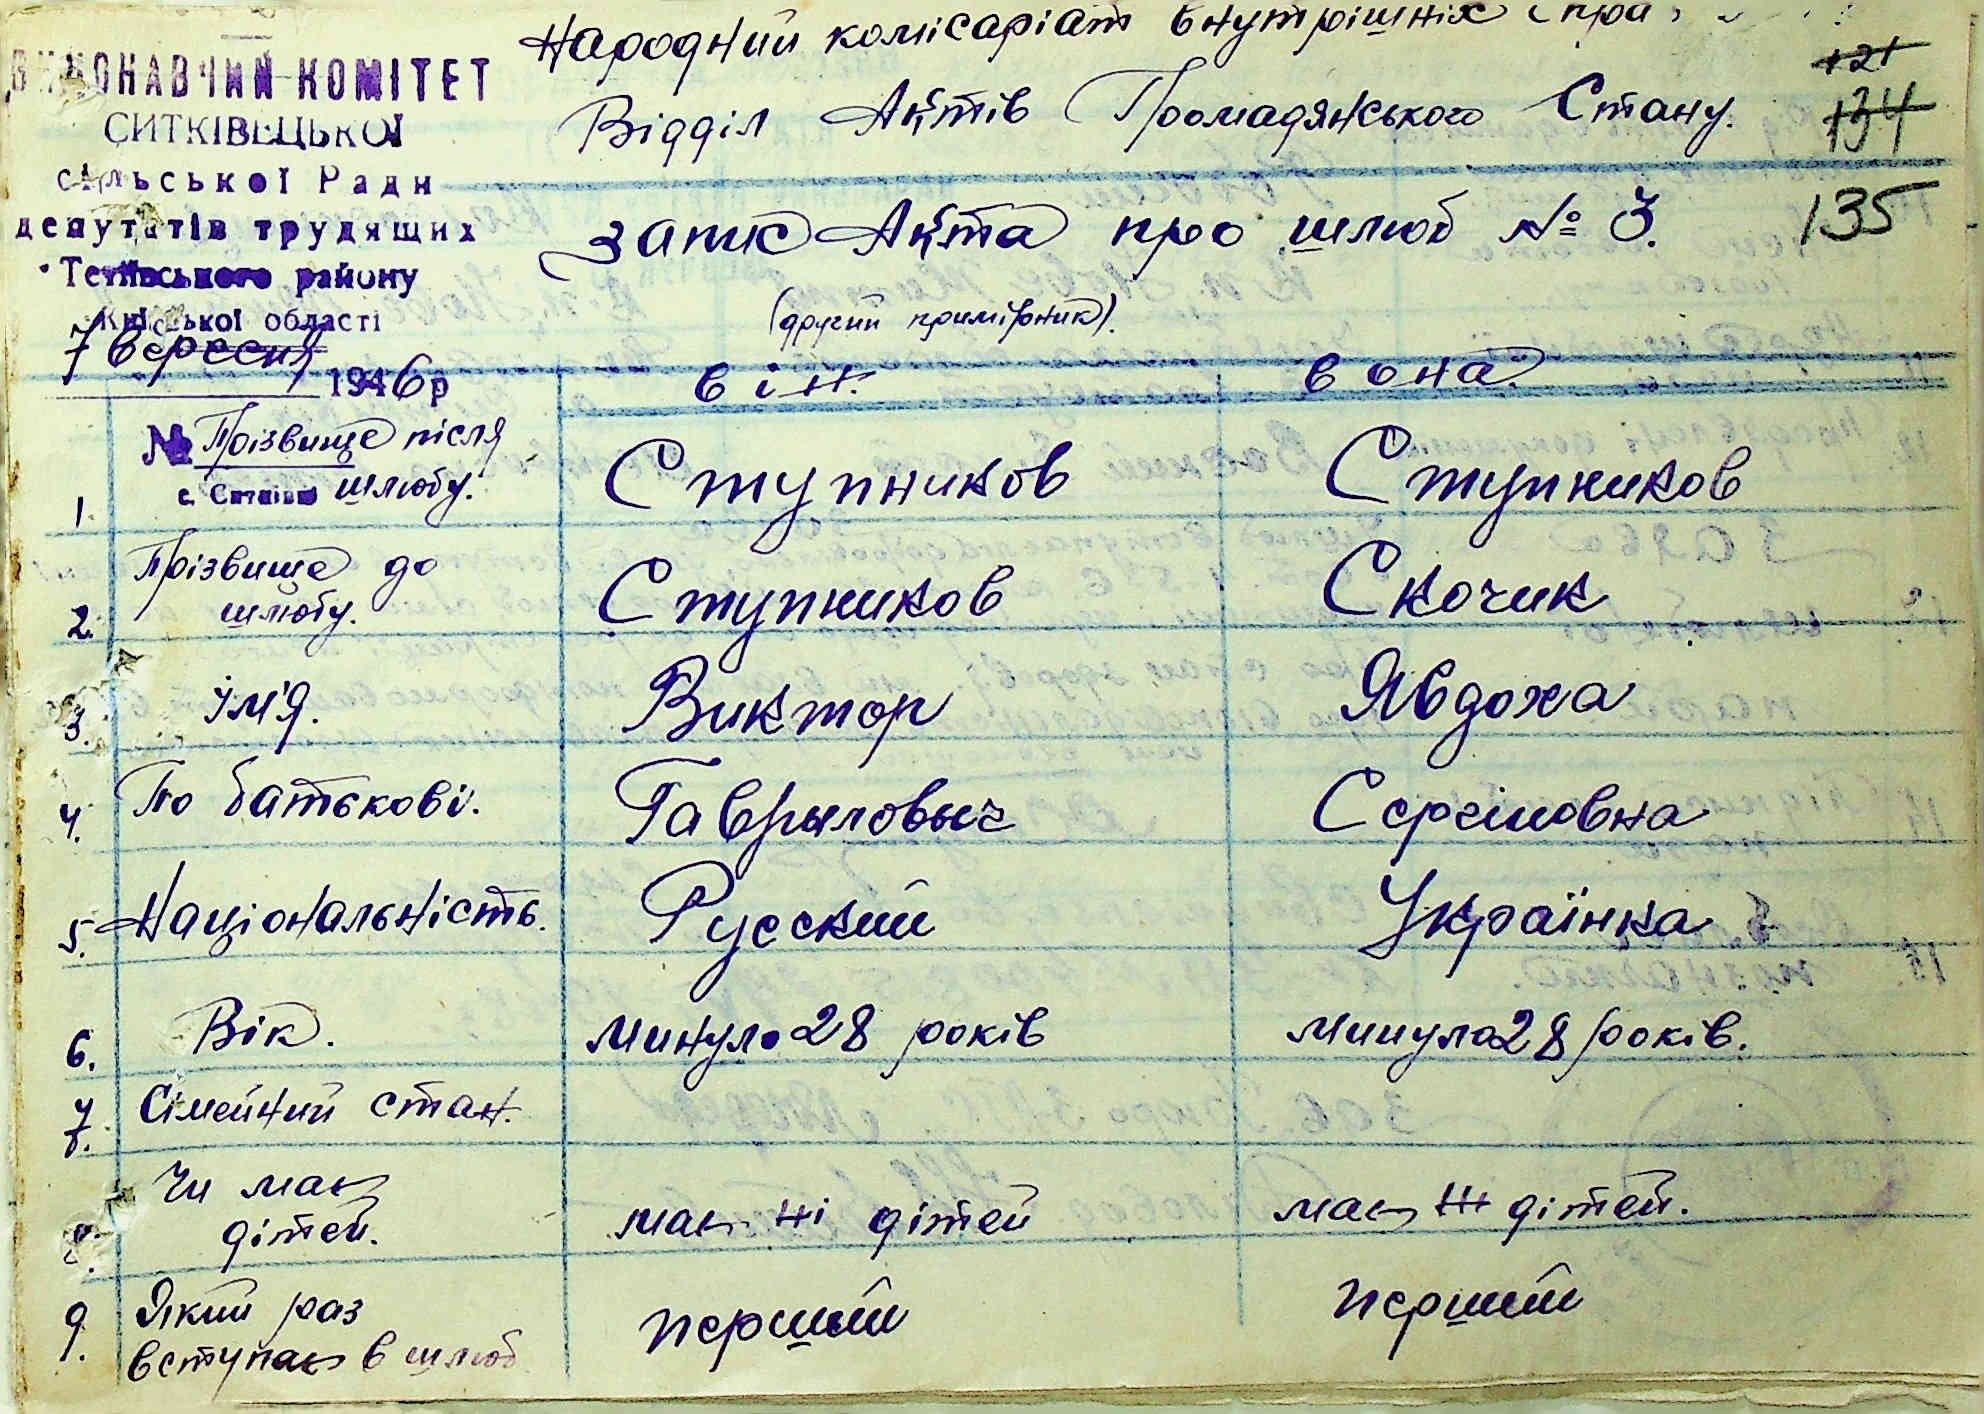 Народний комісаріат внутрішніх спра
Відділ Актів Громадянського Стану.
121
134
135
ВИКОНАВЧИЙ КОМІТЕТ
СИТКІВЕЦЬКОЇ
сільської Ради
депутатів трудящих
Тетіївського району
Київської області
7 вересня
1946р
запис Акта про шлюб № 3.
(другий примірник).
він. вона.
№ Прізвище після
с. Ситківці шлюбу.
1. Ступников Ступников
2. Прізвище до шлюбу. Ступников Скочик
3. ім'я. Виктор Явдоха
4. По батькові. Гаврыловыч Сергіиовна
5. Національність. Русский Українка
6. Вік. минуло 28 років минуло 28 років.
7. Сімейний стан.
8. Чи має дітей. має ні дітей має ні дітей.
9. Який раз вступає в шлюб перший перший